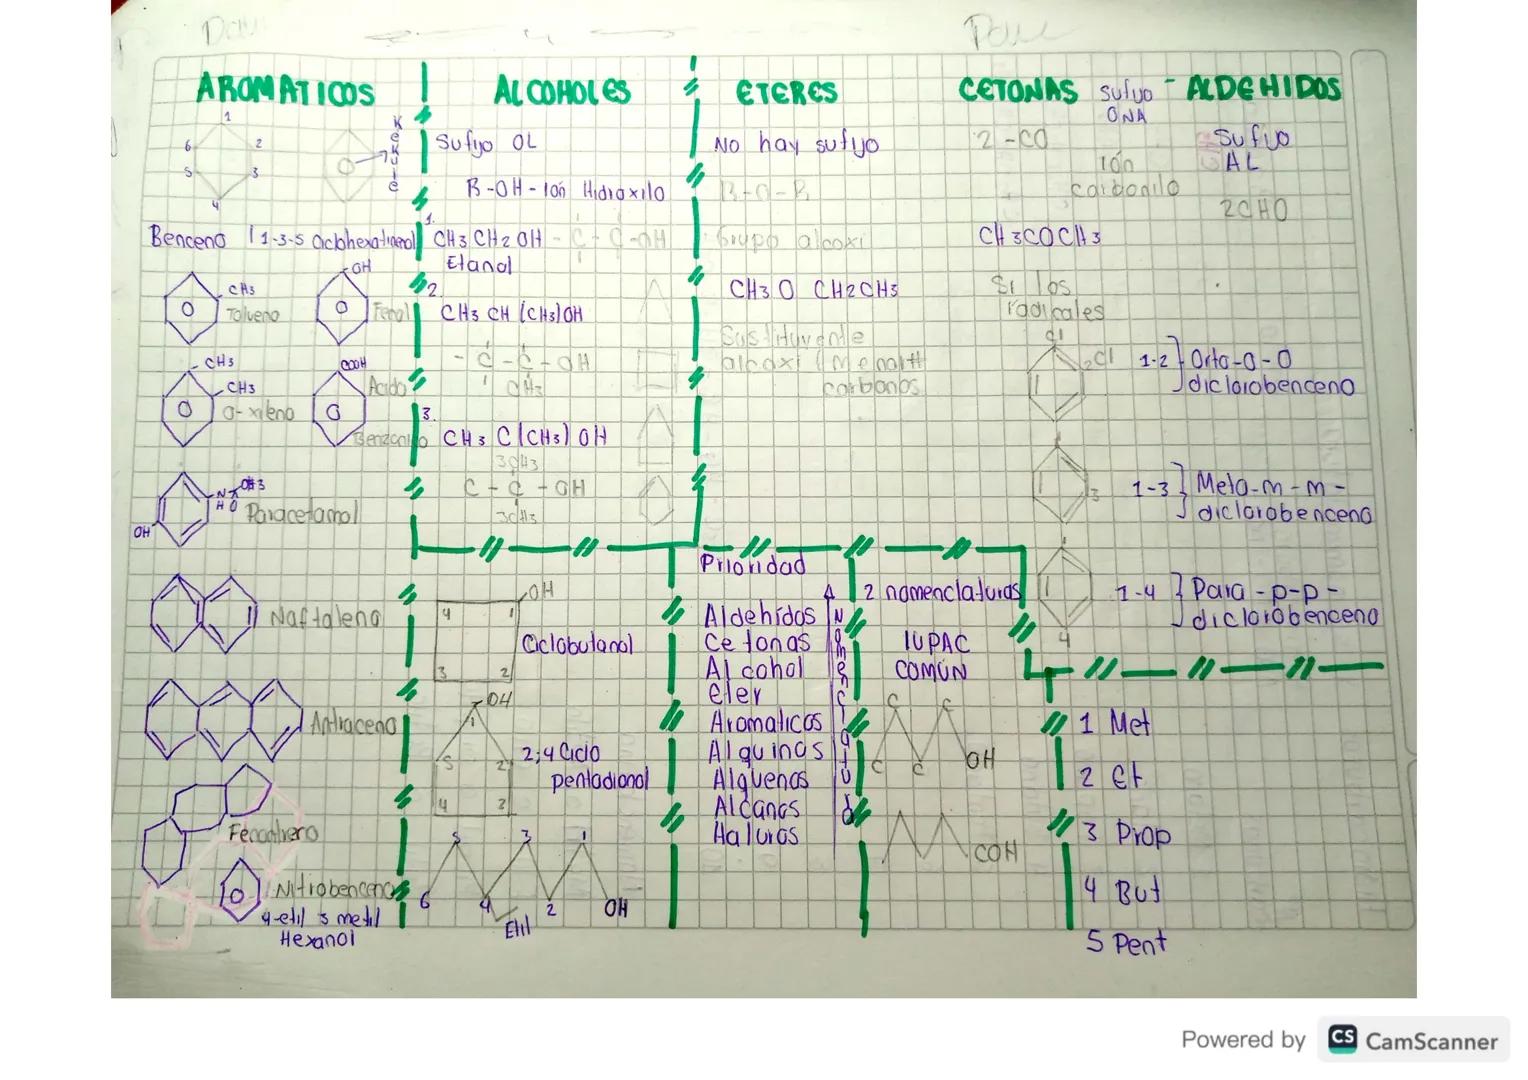 AROMATICOS
1
2
3
4
5
6
Kekulé
Benceno
CH3
Tolueno
OH
Fenol
CH3
CH3
O-xileno
COOH
Acido
OH
Paracetamol
Naftaleno
Antraceno
Nitrobenceno
4-etil 3 metil
Hexanol
ALCOHOLES
Sufijo OL
R-OH-ión Hidroxilo
1.
CH3 CH2 OH - C - C -OH
Etanol
2
CH3 CH (CH3) OH
- C - C - OH
CH3
3.
CH3 C(CH3) OH
3CH3
C - C - OH
3CH3
OH
4 1
3 2
Ciclobutanol
OH
1
5 2
4 3
2,4 Ciclo
pentadional
5 3 1
6 4 2 OH
Etil
ETERES
No hay sufijo
R-O-R
Grupo alcoxi
CH3 O CH2CH3
Sustituyente
alcoxi (Menor #
carbonos
Prioridad
Aldehídos
Cetonas
Alcohol
eter
Aromaticos
Alquinos
Alquenos
Alcanos
Haluros
2 nomenclaturas
IUPAC
COMÚN
C C
C C OH
COH
CETONAS sufijo - ALDEHIDOS
ONA
2 -CO
ión
carbonilo
Sufijo
AL
2CHO
CH3COCH3
Si los
radicales
Cl
2 Cl
1-2 } Orto-O-O
diclorobenceno
3
1-3 } Meta-m-m-
diclorobenceno
4
1-4 } Para-p-p-
diclorobenceno
1 Met
2 Et
3 Prop
4 But
5 Pent
Powered by CS CamScanner